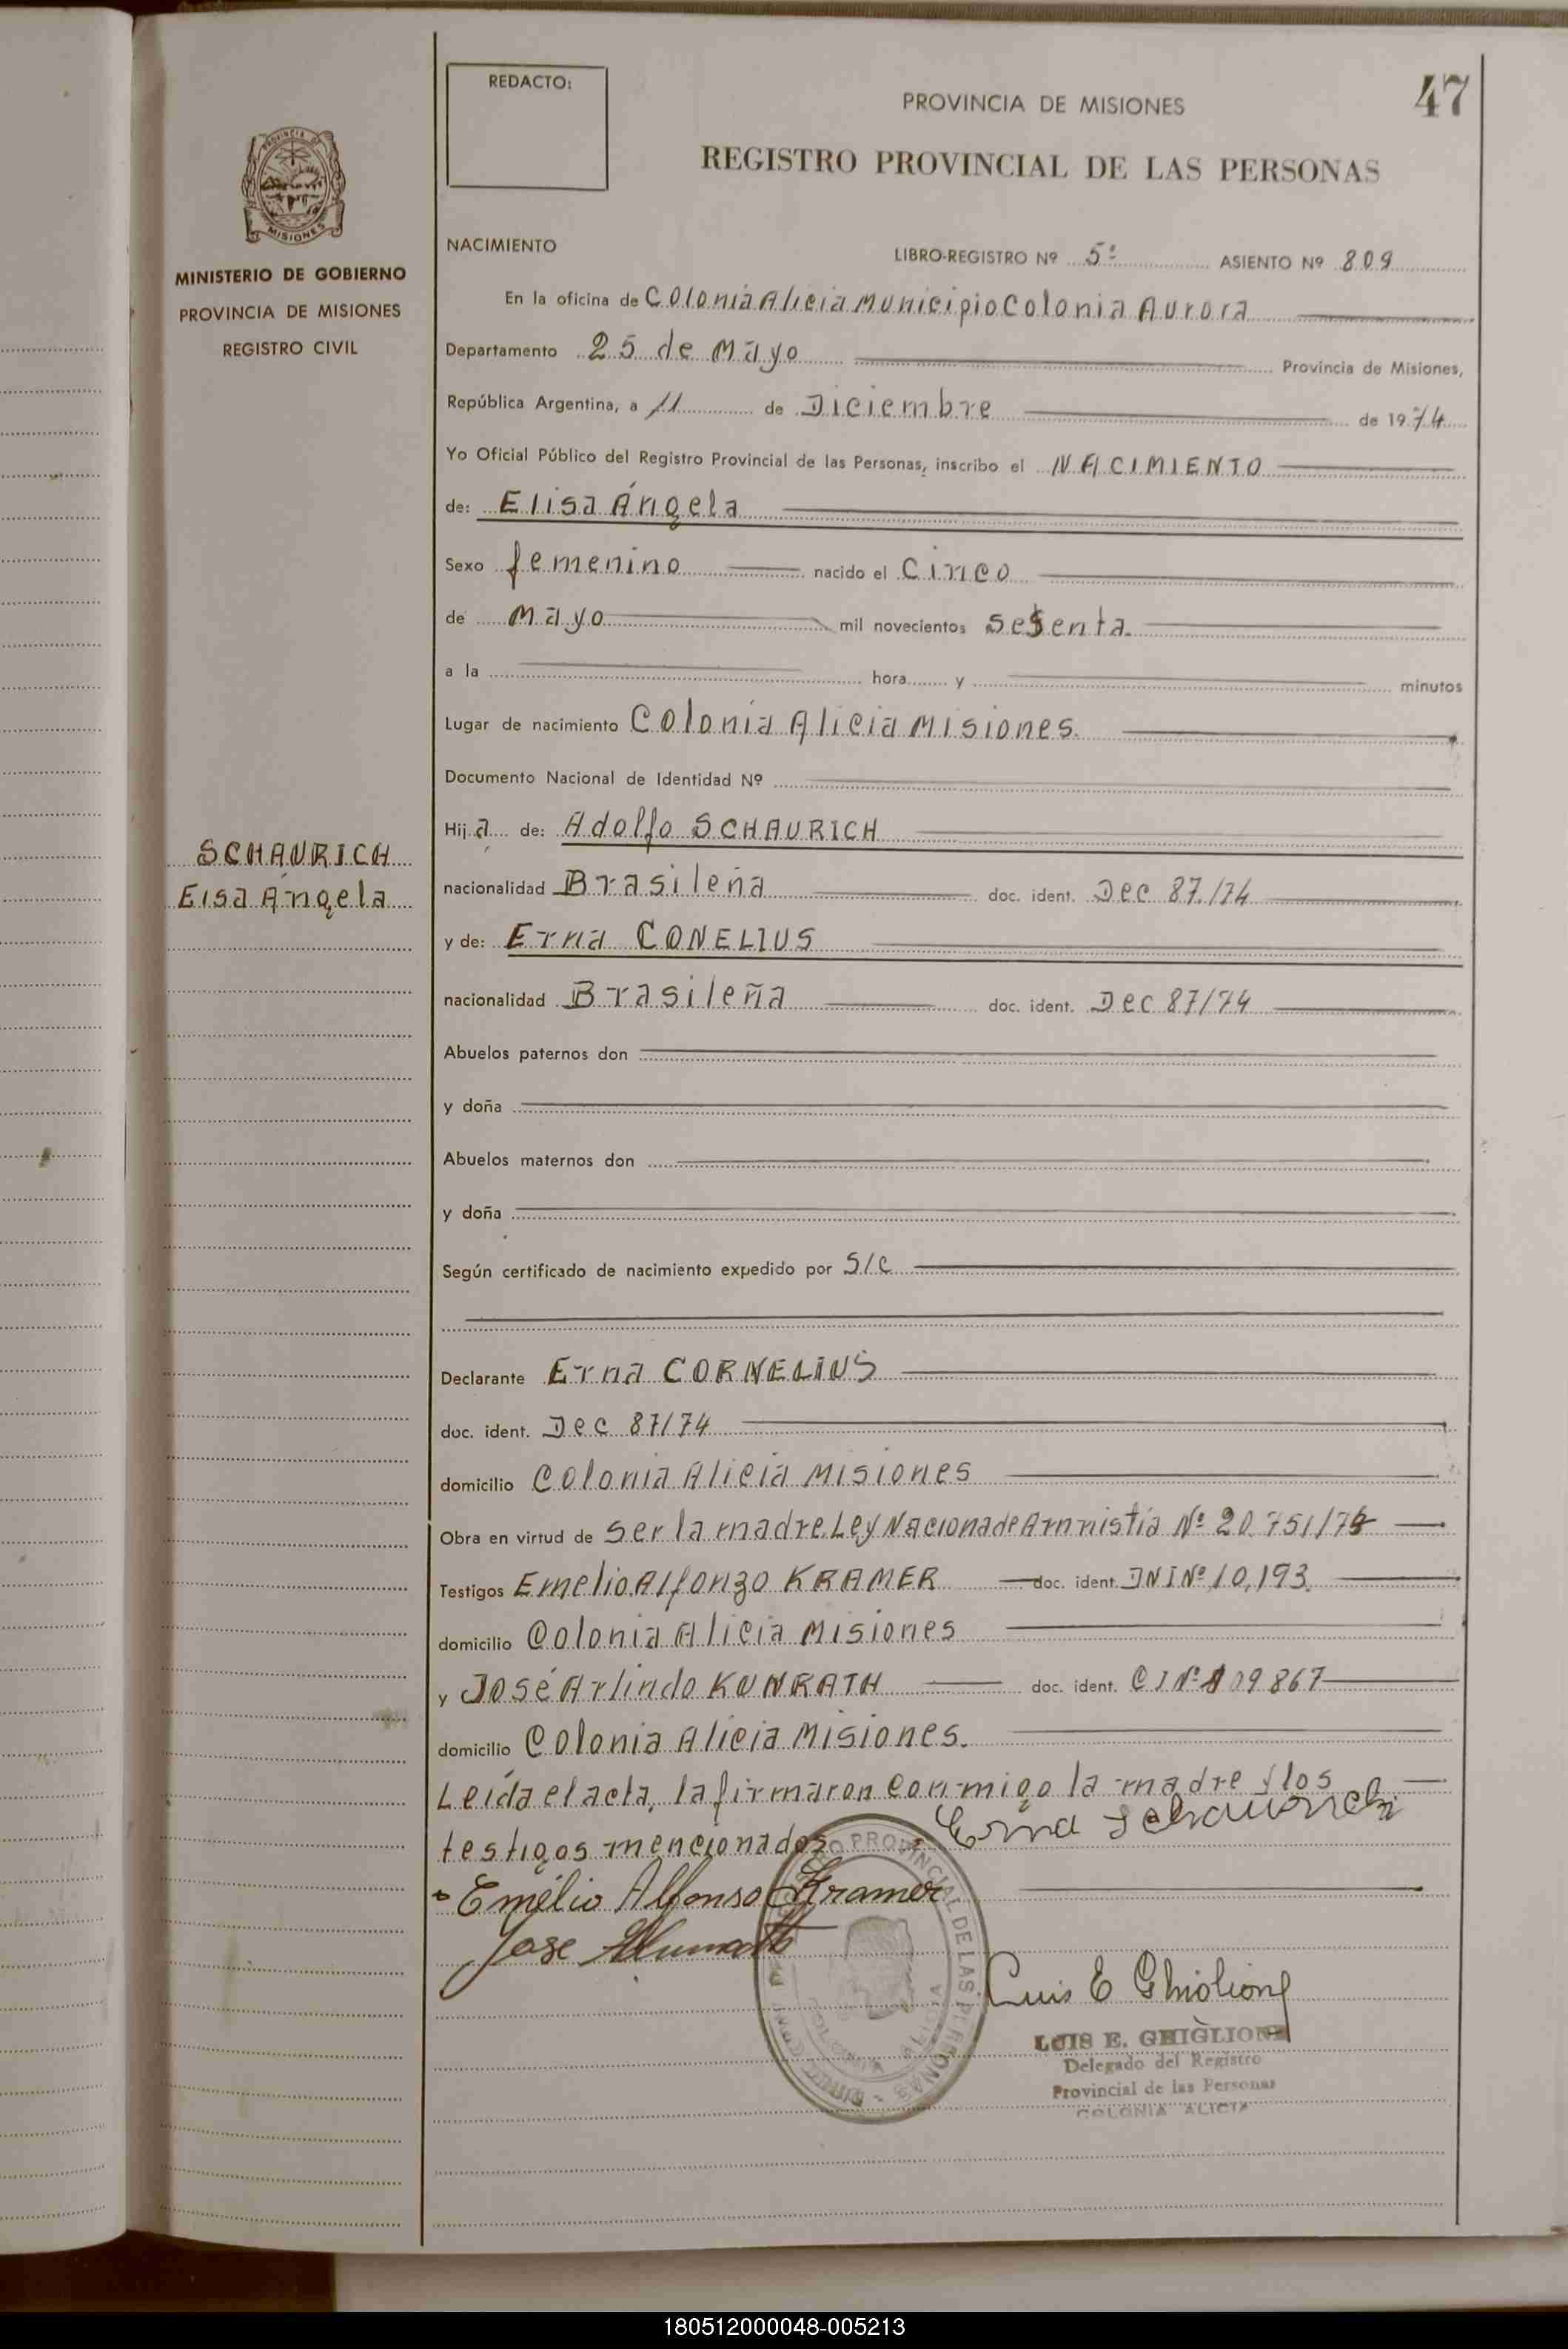 REDACTO:
PROVINCIA DE MISIONES
47
REGISTRO PROVINCIAL DE LAS PERSONAS
PROVINCIA DE
MISIONES
MINISTERIO DE GOBIERNO
PROVINCIA DE MISIONES
REGISTRO CIVIL
SCHAURICH
Elsa Ángela
NACIMIENTO
LIBRO-REGISTRO Nº 5º ASIENTO Nº 809
En la oficina de Colonia Alicia Municipio Colonia Aurora
Departamento 25 de Mayo Provincia de Misiones,
República Argentina, a 11 de Diciembre de 1974
Yo Oficial Público del Registro Provincial de las Personas, inscribo el NACIMIENTO
de: Elisa Ángela
Sexo femenino nacido el Cinco
de Mayo mil novecientos sesenta.
a la hora y minutos
Lugar de nacimiento Colonia Alicia Misiones.
Documento Nacional de Identidad Nº
Hija de: Adolfo SCHAURICH
nacionalidad Brasileña doc. ident. Dec 87/74
y de: Erna CONELIUS
nacionalidad Brasileña doc. ident. Dec 87/74
Abuelos paternos don
y doña
Abuelos maternos don
y doña
Según certificado de nacimiento expedido por S/C
Declarante Erna CORNELIUS
doc. ident. Dec 87/74
domicilio Colonia Alicia Misiones
Obra en virtud de ser la madre. Ley Naciona de Amnistía Nº 20.751/75
Testigos Emelio Alfonzo KRAMER doc. ident. INI Nº 10,193.
domicilio Colonia Alicia Misiones
y José Arlindo KUNRATH doc. ident. CI Nº 109867
domicilio Colonia Alicia Misiones.
Leída el acta, la firmaron conmigo la madre y los
testigos mencionados
Erna Schauerich
Emélio Alfonso Kramer
Jose
REGISTRO PROVINCIAL DE LAS PERSONAS
COLONIA ALICIA
Luis E Ghiglione
LUIS E. GHIGLIONE
Delegado del Registro
Provincial de las Personas
COLONIA ALICIA
180512000048-005213